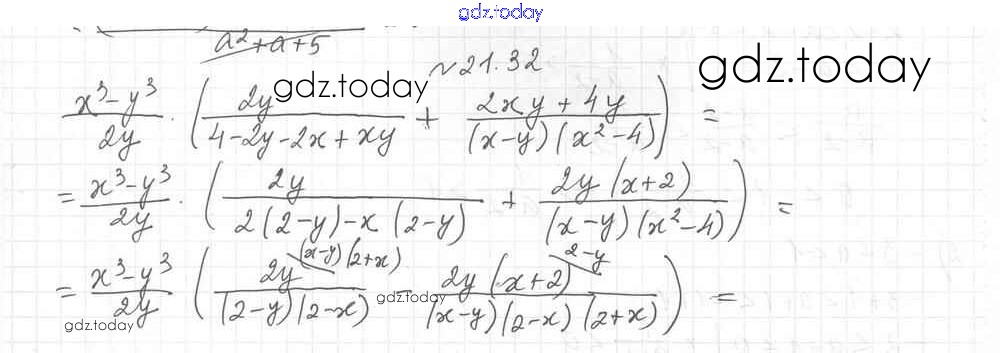 gdz.today
a²+a+5
№21.32
gdz.today
gdz.today
x³-y³/2y · (2y/(4-2y-2x+xy) + (2xy+4y)/((x-y)(x²-4))) =
= x³-y³/2y · (2y/(2(2-y)-x(2-y)) + 2y(x+2)/((x-y)(x²-4))) =
= x³-y³/2y (2y (x-y)(2+x)/((2-y)(2-x)) - 2y(x+2) 2-y/((x-y)(2-x)(2+x))) =
gdz.today
gdz.today